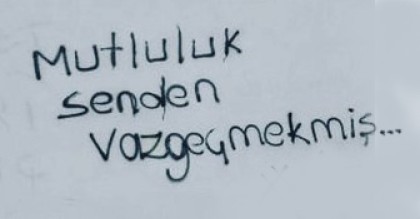 Mutluluk
senden
vazgeçmekmiş...